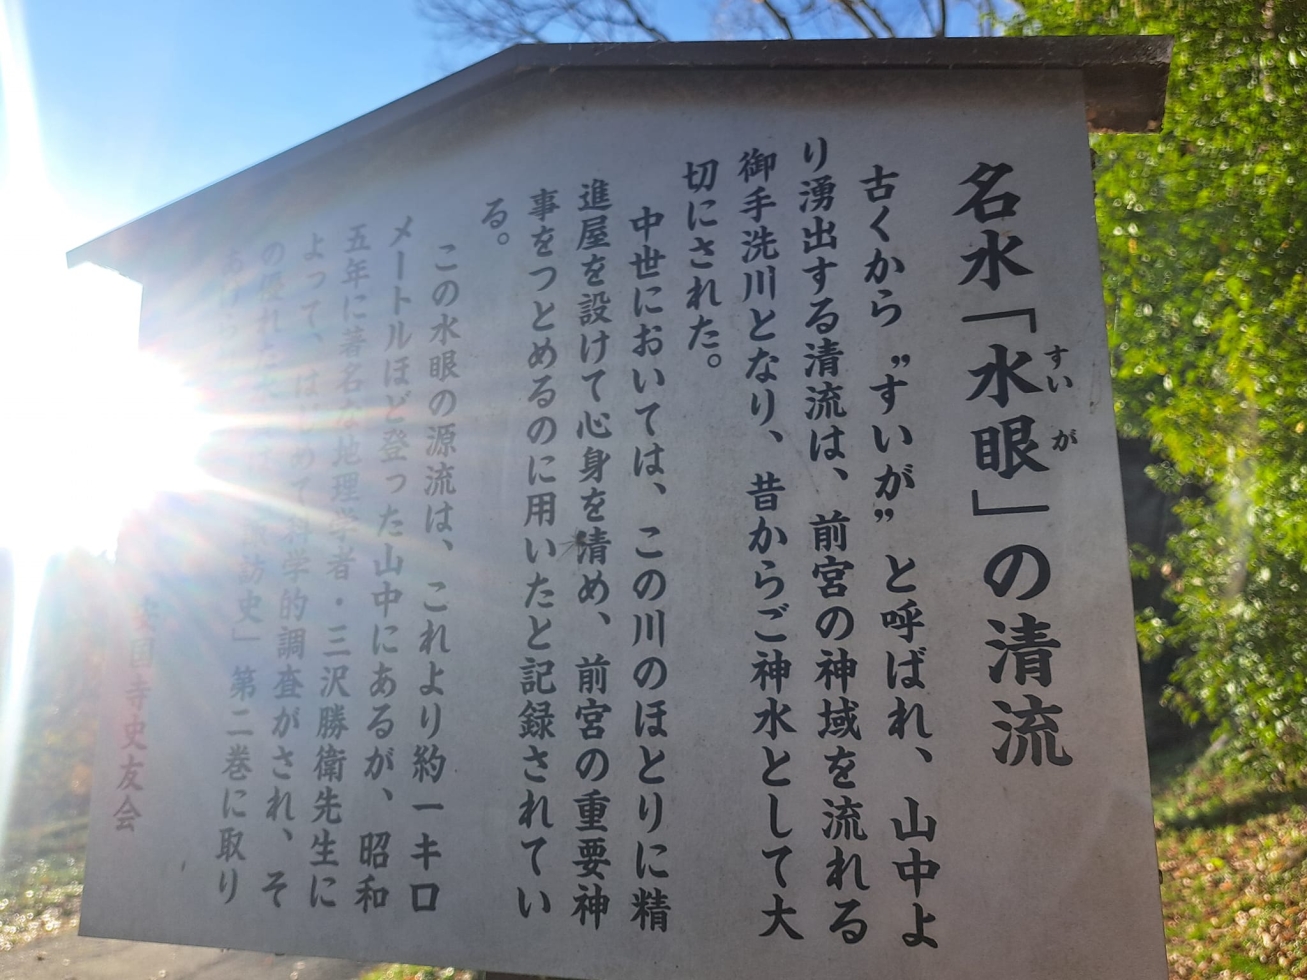 名水「水眼」の清流
すいが
古くから〝すいが〟と呼ばれ、山中よ
り湧出する清流は、前宮の神域を流れる
御手洗川となり、昔からご神水として大
切にされた。
中世においては、この川のほとりに精
進屋を設けて心身を清め、前宮の重要神
事をつとめるのに用いたと記録されてい
る。
この水眼の源流は、これより約一キロ
メートルほど登った山中にあるが、昭和
五年に著名な地理学者・三沢勝衛先生に
よって、はじめて科学的調査がされ、そ
の優れた
訪史」第二巻に取り
あげ
安国寺史友会